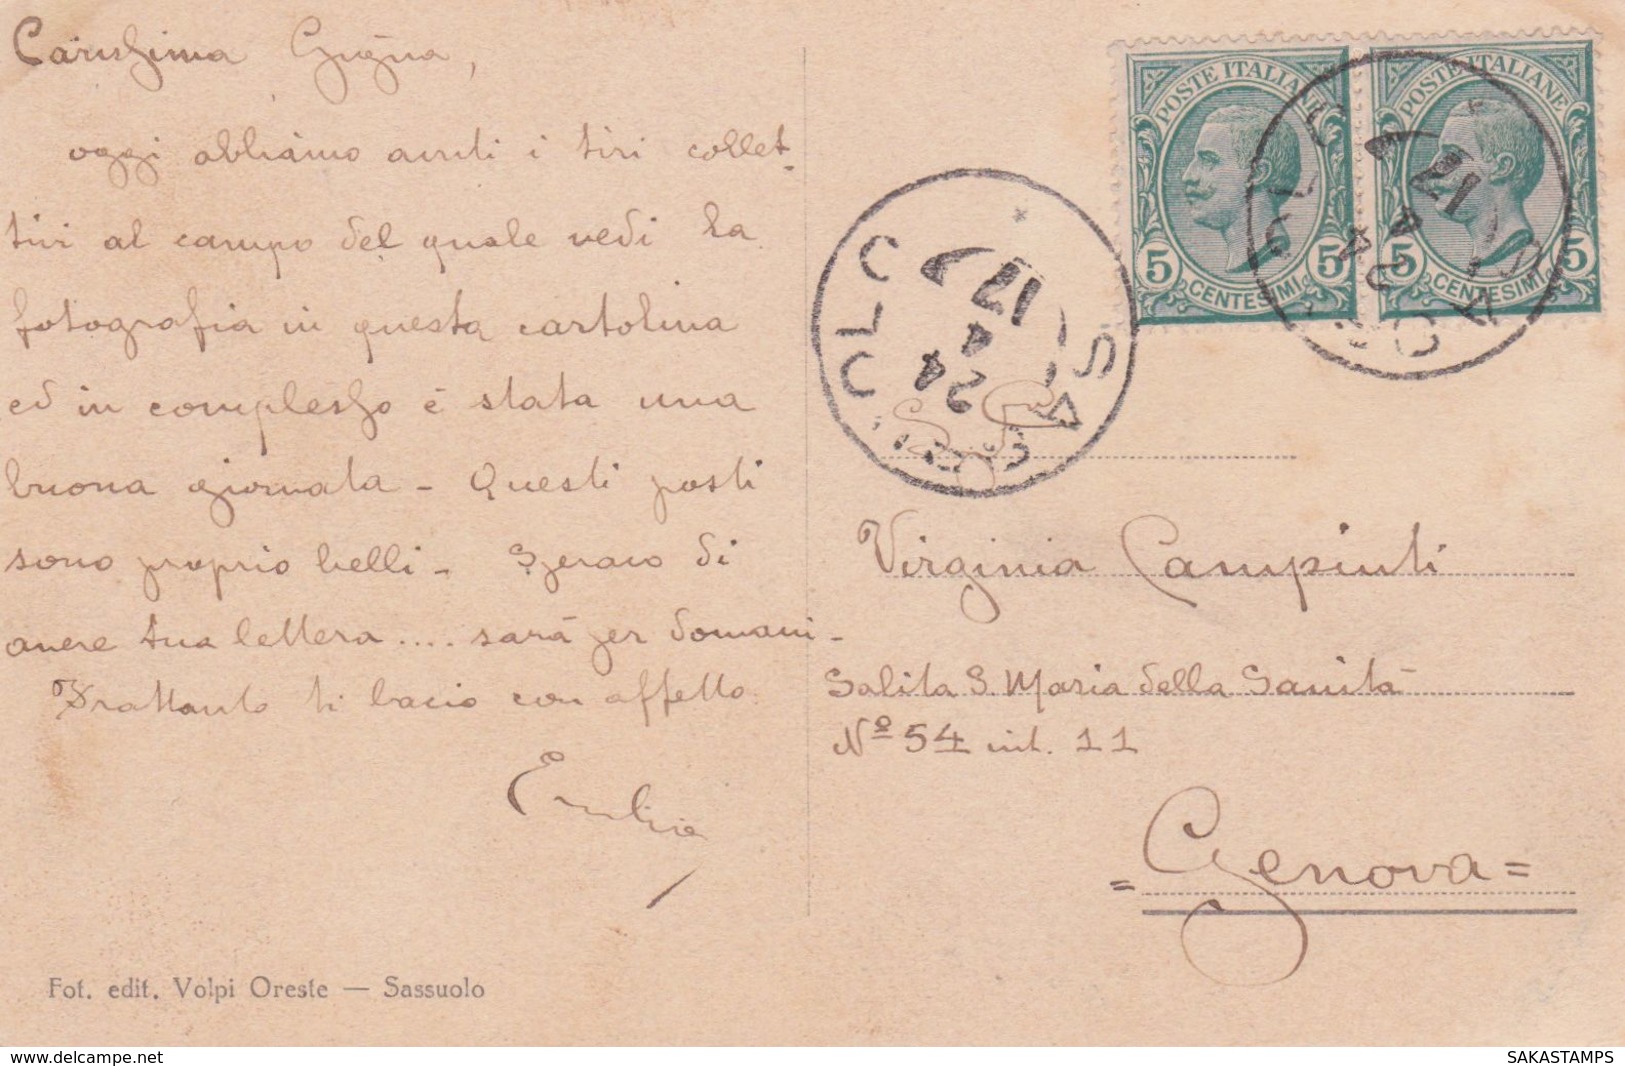 Carissima Gigina,
oggi abbiamo avuti i tiri collet-
tivi al campo del quale vedi la
fotografia in questa cartolina
ed in complesso è stata una
buona giornata - Questi posti
sono proprio belli - Speravo di
avere tua lettera .... sarà per domani -
Frattanto ti bacio con affetto
Fot. edit. Volpi Oreste — Sassuolo
POSTE ITALIANE
5 CENTESIMI 5
POSTE ITALIANE
5 CENTESIMI 5
17
4
24
17
4
24
Virginia Campinti
Salita S. Maria della Sanità
Nº 54 int. 11
= Genova =
www.delcampe.net
SAKASTAMPS